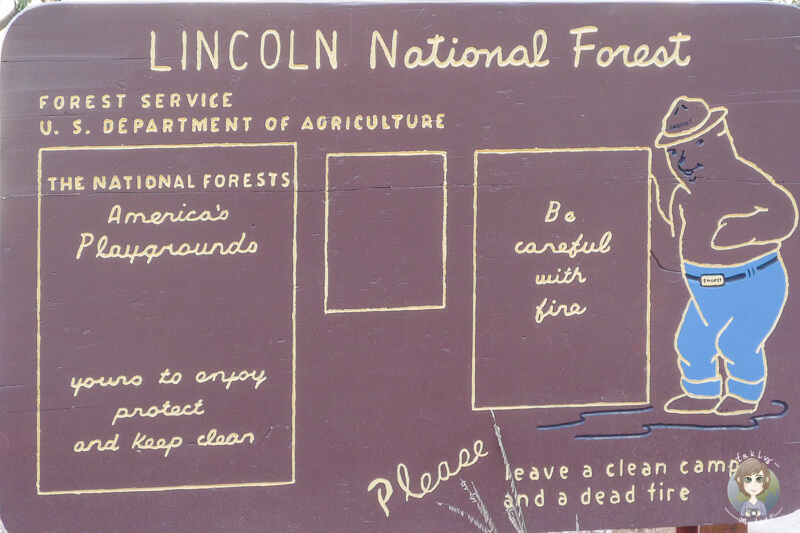 LINCOLN National Forest
FOREST SERVICE
U. S. DEPARTMENT OF AGRICULTURE
THE NATIONAL FORESTS
America's
Playgrounds
yours to enjoy
protect
and keep clean
Be
careful
with
fire
SMOKEY
Please
leave a clean camp
and a dead fire